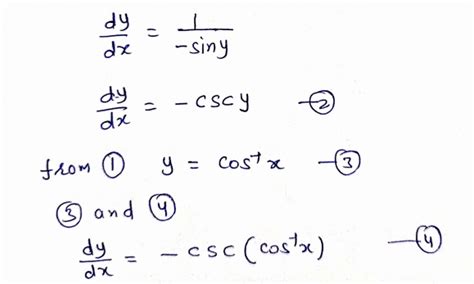 dy/dx = 1/-siny
dy/dx = -cscy —②
from ① y = cos⁻¹x —③
③ and ④
dy/dx = -csc(cos⁻¹x) —④